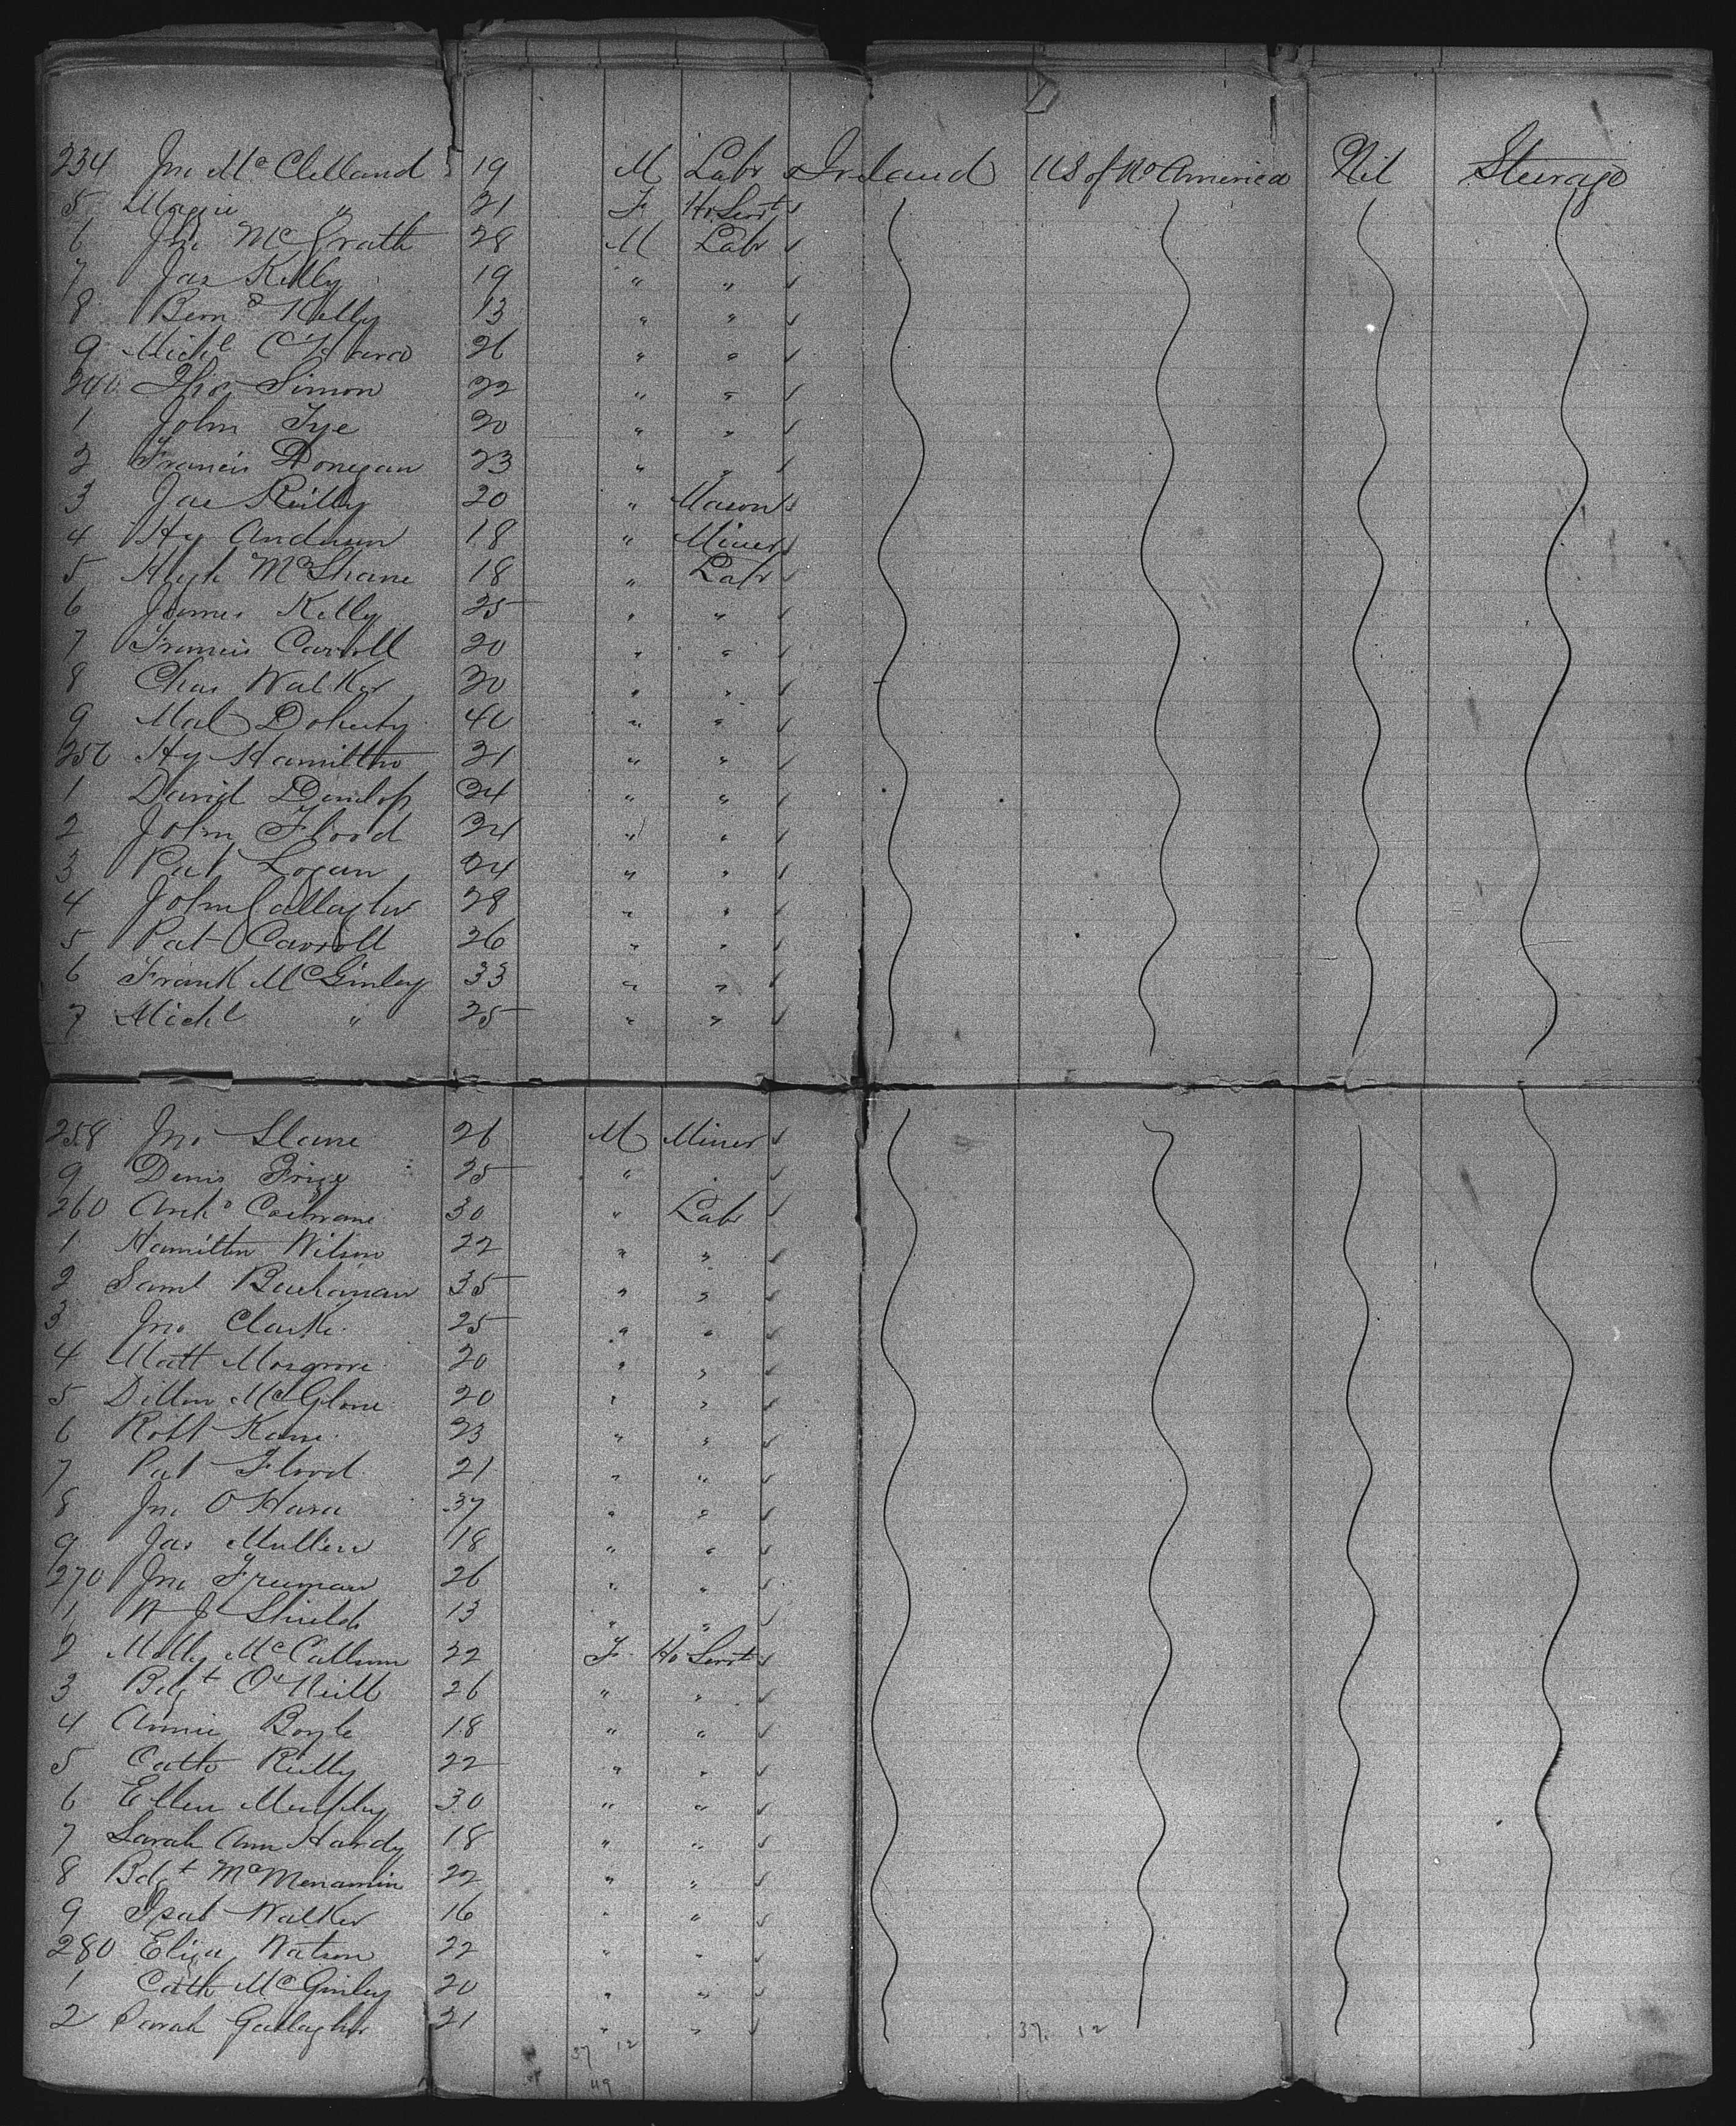 234 Jno McClelland 19 M Labr Ireland US of No America Nil Steerage
5 Maggie " 21 F Ho Servt
6 Jno McGrath 28 M Labr
7 Jas Kelly 19 " "
8 Bernd Kelly 13 " "
9 Michl O'Hara 26 " "
240 Thos Simon 22 " "
1 John Tye 20 " "
2 Francis Donegan 23 " "
3 Jas Reilly 20 " Mason
4 Hy Anderson 18 " Miner
5 Hugh McShane 18 " Labr
6 James Kelly 25 " "
7 Francis Carroll 20 " "
8 Chas Walker 30 " "
9 Mal Doherty 40 " "
250 Hy Hamilton 21 " "
1 David Dunlop 24 " "
2 John Flood 24 " "
3 Pat Logan 24 " "
4 John Gallagher 28 " "
5 Pat Carroll 26 " "
6 Frank McGinley 33 " "
7 Michl " 25 " "
258 Jno Slane 26 M Miner
9 Denis 25 " "
260 Archd Cochrane 30 " Labr
1 Hamilton Wilson 22 " "
2 Saml Buchanan 35 " "
3 Jno Clarke 25 " "
4 Matt Mosgrove 20 " "
5 Dillon McGlone 20 " "
6 Robt Kane 23 " "
7 Pat Flood 21 " "
8 Jno O'Hara 37 " "
9 Jas Mullen 18 " "
270 Jno Freeman 26 " "
1 W J Shields 13 " "
2 Molly McCallum 22 F Ho Servt
3 Bdgt O'Neill 26 " "
4 Annie Boyle 18 " "
5 Cath Reilly 22 " "
6 Ellen Murphy 30 " "
7 Sarah Ann Hardy 18 " "
8 Bdgt McMenamin 22 " "
9 Isab Walker 16 " "
280 Eliza Watson 22 " "
1 Cath McGinley 20 " "
2 Sarah Gallagher 21 " "
37 12 37 12
49